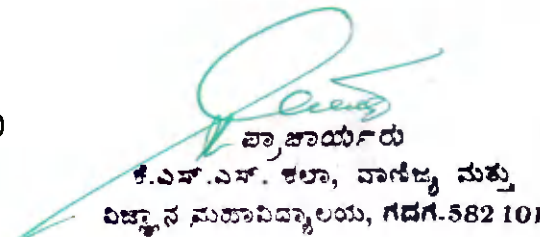 ಪ್ರಾಚಾರ್ಯರು
ಕೆ.ಎಸ್.ಎಸ್. ಕಲಾ, ವಾಣಿಜ್ಯ ಮತ್ತು
ವಿಜ್ಞಾನ ಮಹಾವಿದ್ಯಾಲಯ, ಗದಗ-582 101